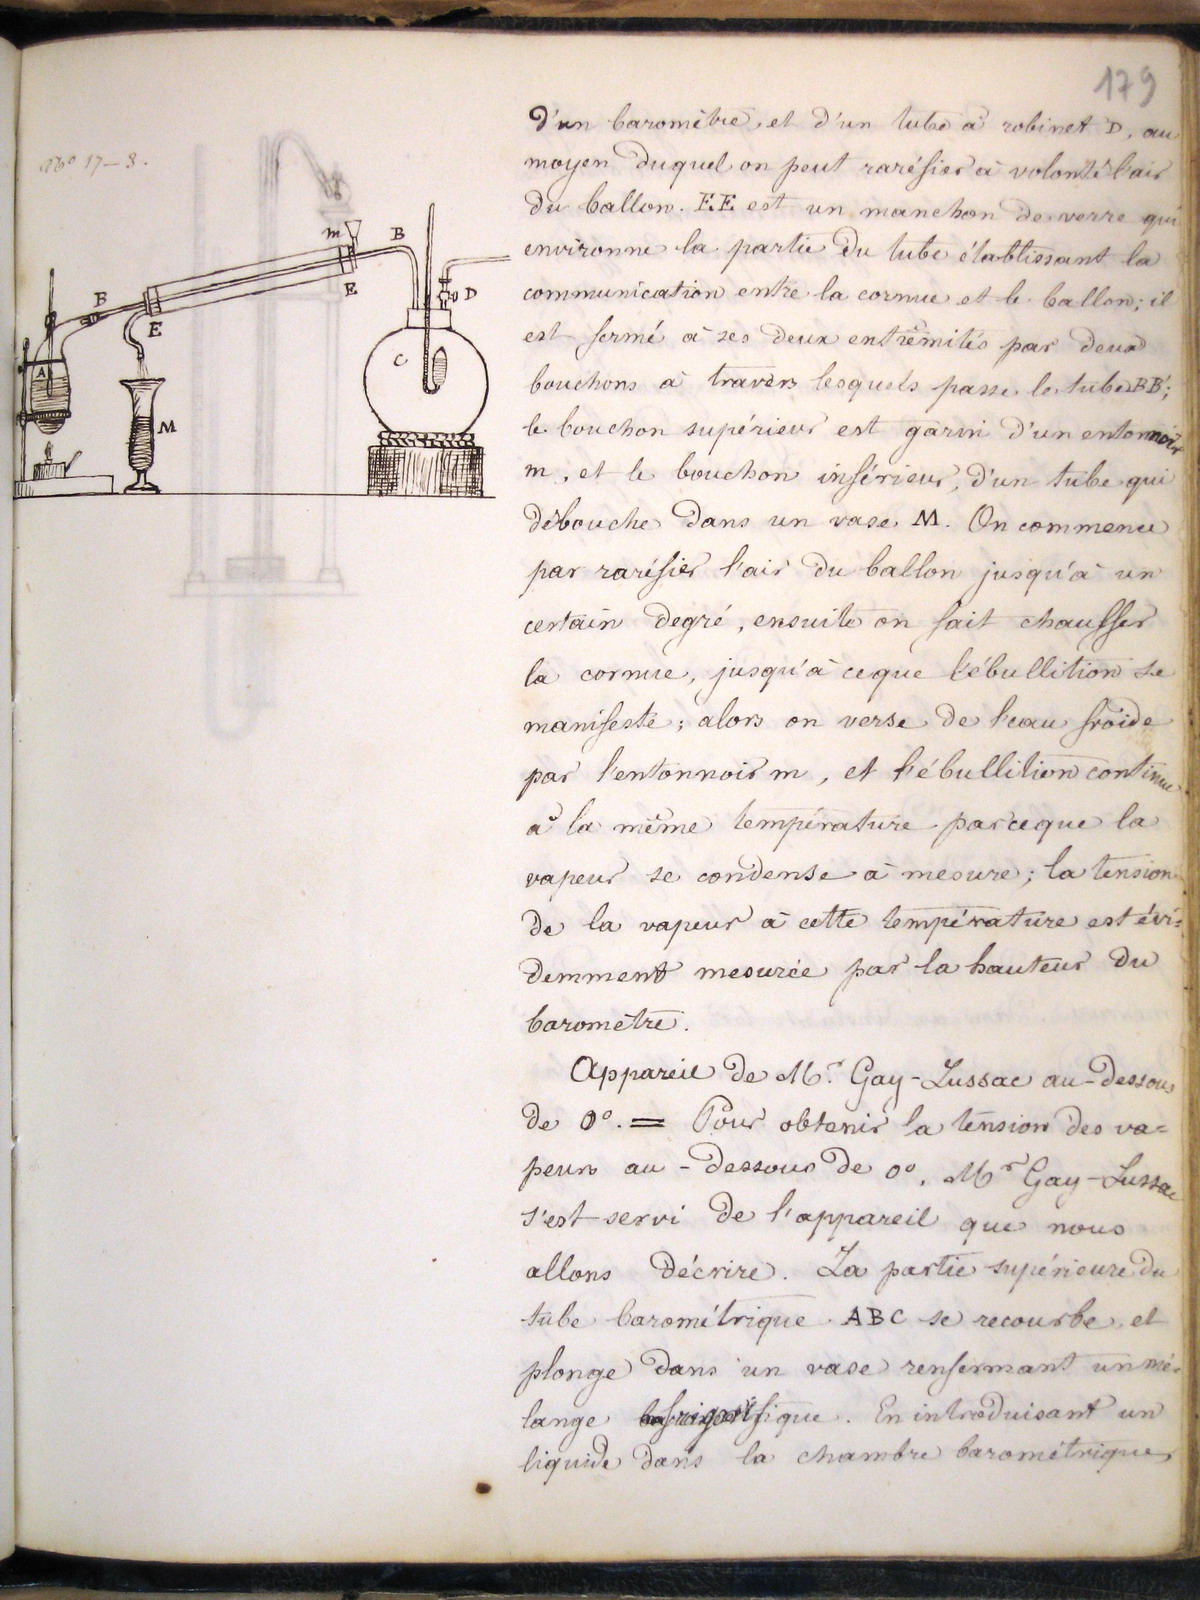 179
d'un baromètre, et d'un tube à robinet D, au
moyen duquel on peut raréfier à volonté l'air
du ballon. EE est un manchon de verre qui
environne la partie du tube établissant la
communication entre la cornue et le ballon; il
est fermé à ses deux extrêmités par deux
bouchons à travers lesquels passe le tube BB';
le bouchon supérieur est garni d'un entonnoir
m, et le bouchon inférieur, d'un tube qui
débouche dans un vase M. On commence
par raréfier l'air du ballon jusqu'à un
certain degré, ensuite on fait chauffer
la cornue, jusqu'à ceque l'ébullition se
manifeste; alors on verse de l'eau froide
par l'entonnoir m, et l'ébullition continue
à la même température parceque la
vapeur se condense à mesure; la tension
de la vapeur à cette température est évi=
demment mesurée par la hauteur du
baromètre.
Appareil de Mr. Gay-Lussac au-dessous
de 0°. = Pour obtenir la tension des va=
peurs au-dessous de 0°, Mr Gay-Lussac
s'est servi de l'appareil que nous
allons décrire. La partie supérieure du
tube barométrique ABC se recourbe, et
plonge dans un vase renfermant un mé-
lange frigorifique. En introduisant un
liquide dans la chambre barométrique
No 17-8.
m
B
E
D
B
E
C
A
M